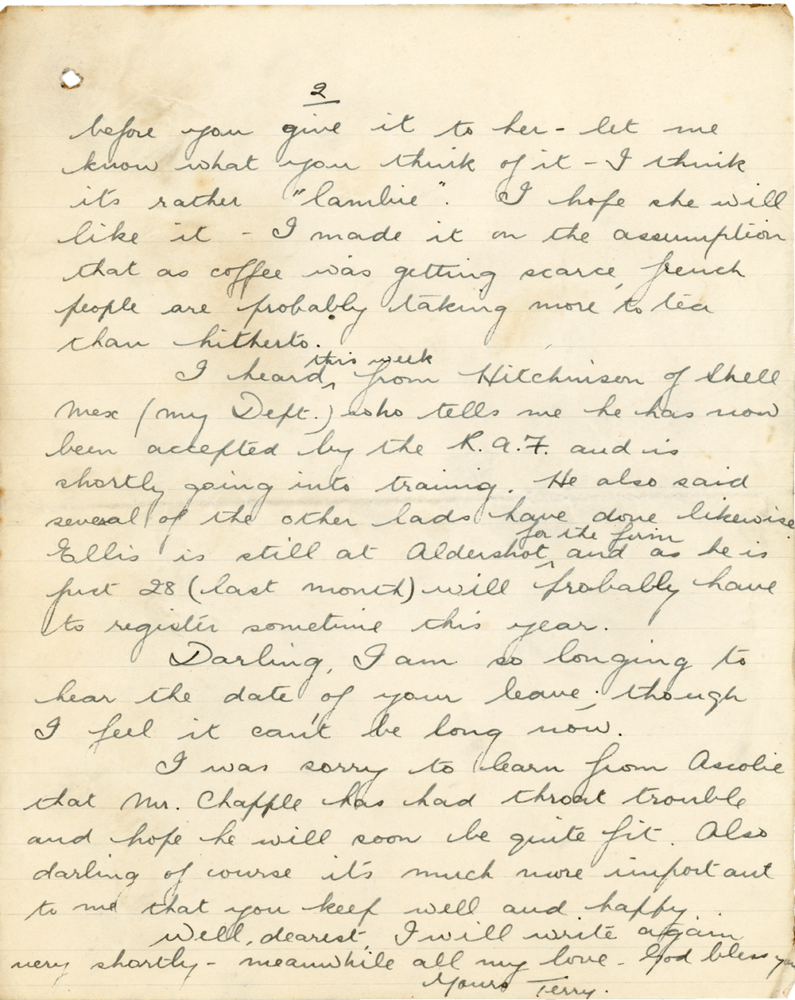 2
before you give it to her - let me
know what you think of it - I think
it's rather "lambie". I hope she will
like it - I made it on the assumption
that as coffee was getting scarce, french
people are probably taking more to tea
than hitherto.
I heard this week from Hitchinson of Shell
Mex (my Dept.) who tells me he has now
been accepted by the R.A.F. and is
shortly going into training. He also said
several of the other lads have done likewise.
Ellis is still at Aldershot for the firm and as he is
just 28 (last month) will probably have
to register sometime this year.
Darling, I am so longing to
hear the date of your leave, though
I feel it can't be long now.
I was sorry to learn from
that Mr. Chapple has had throat trouble
and hope he will soon be quite fit. Also
darling of course it's much more important
to me that you keep well and happy.
Well, dearest, I will write again
very shortly - meanwhile all my love - God bless you
Yours Terry.